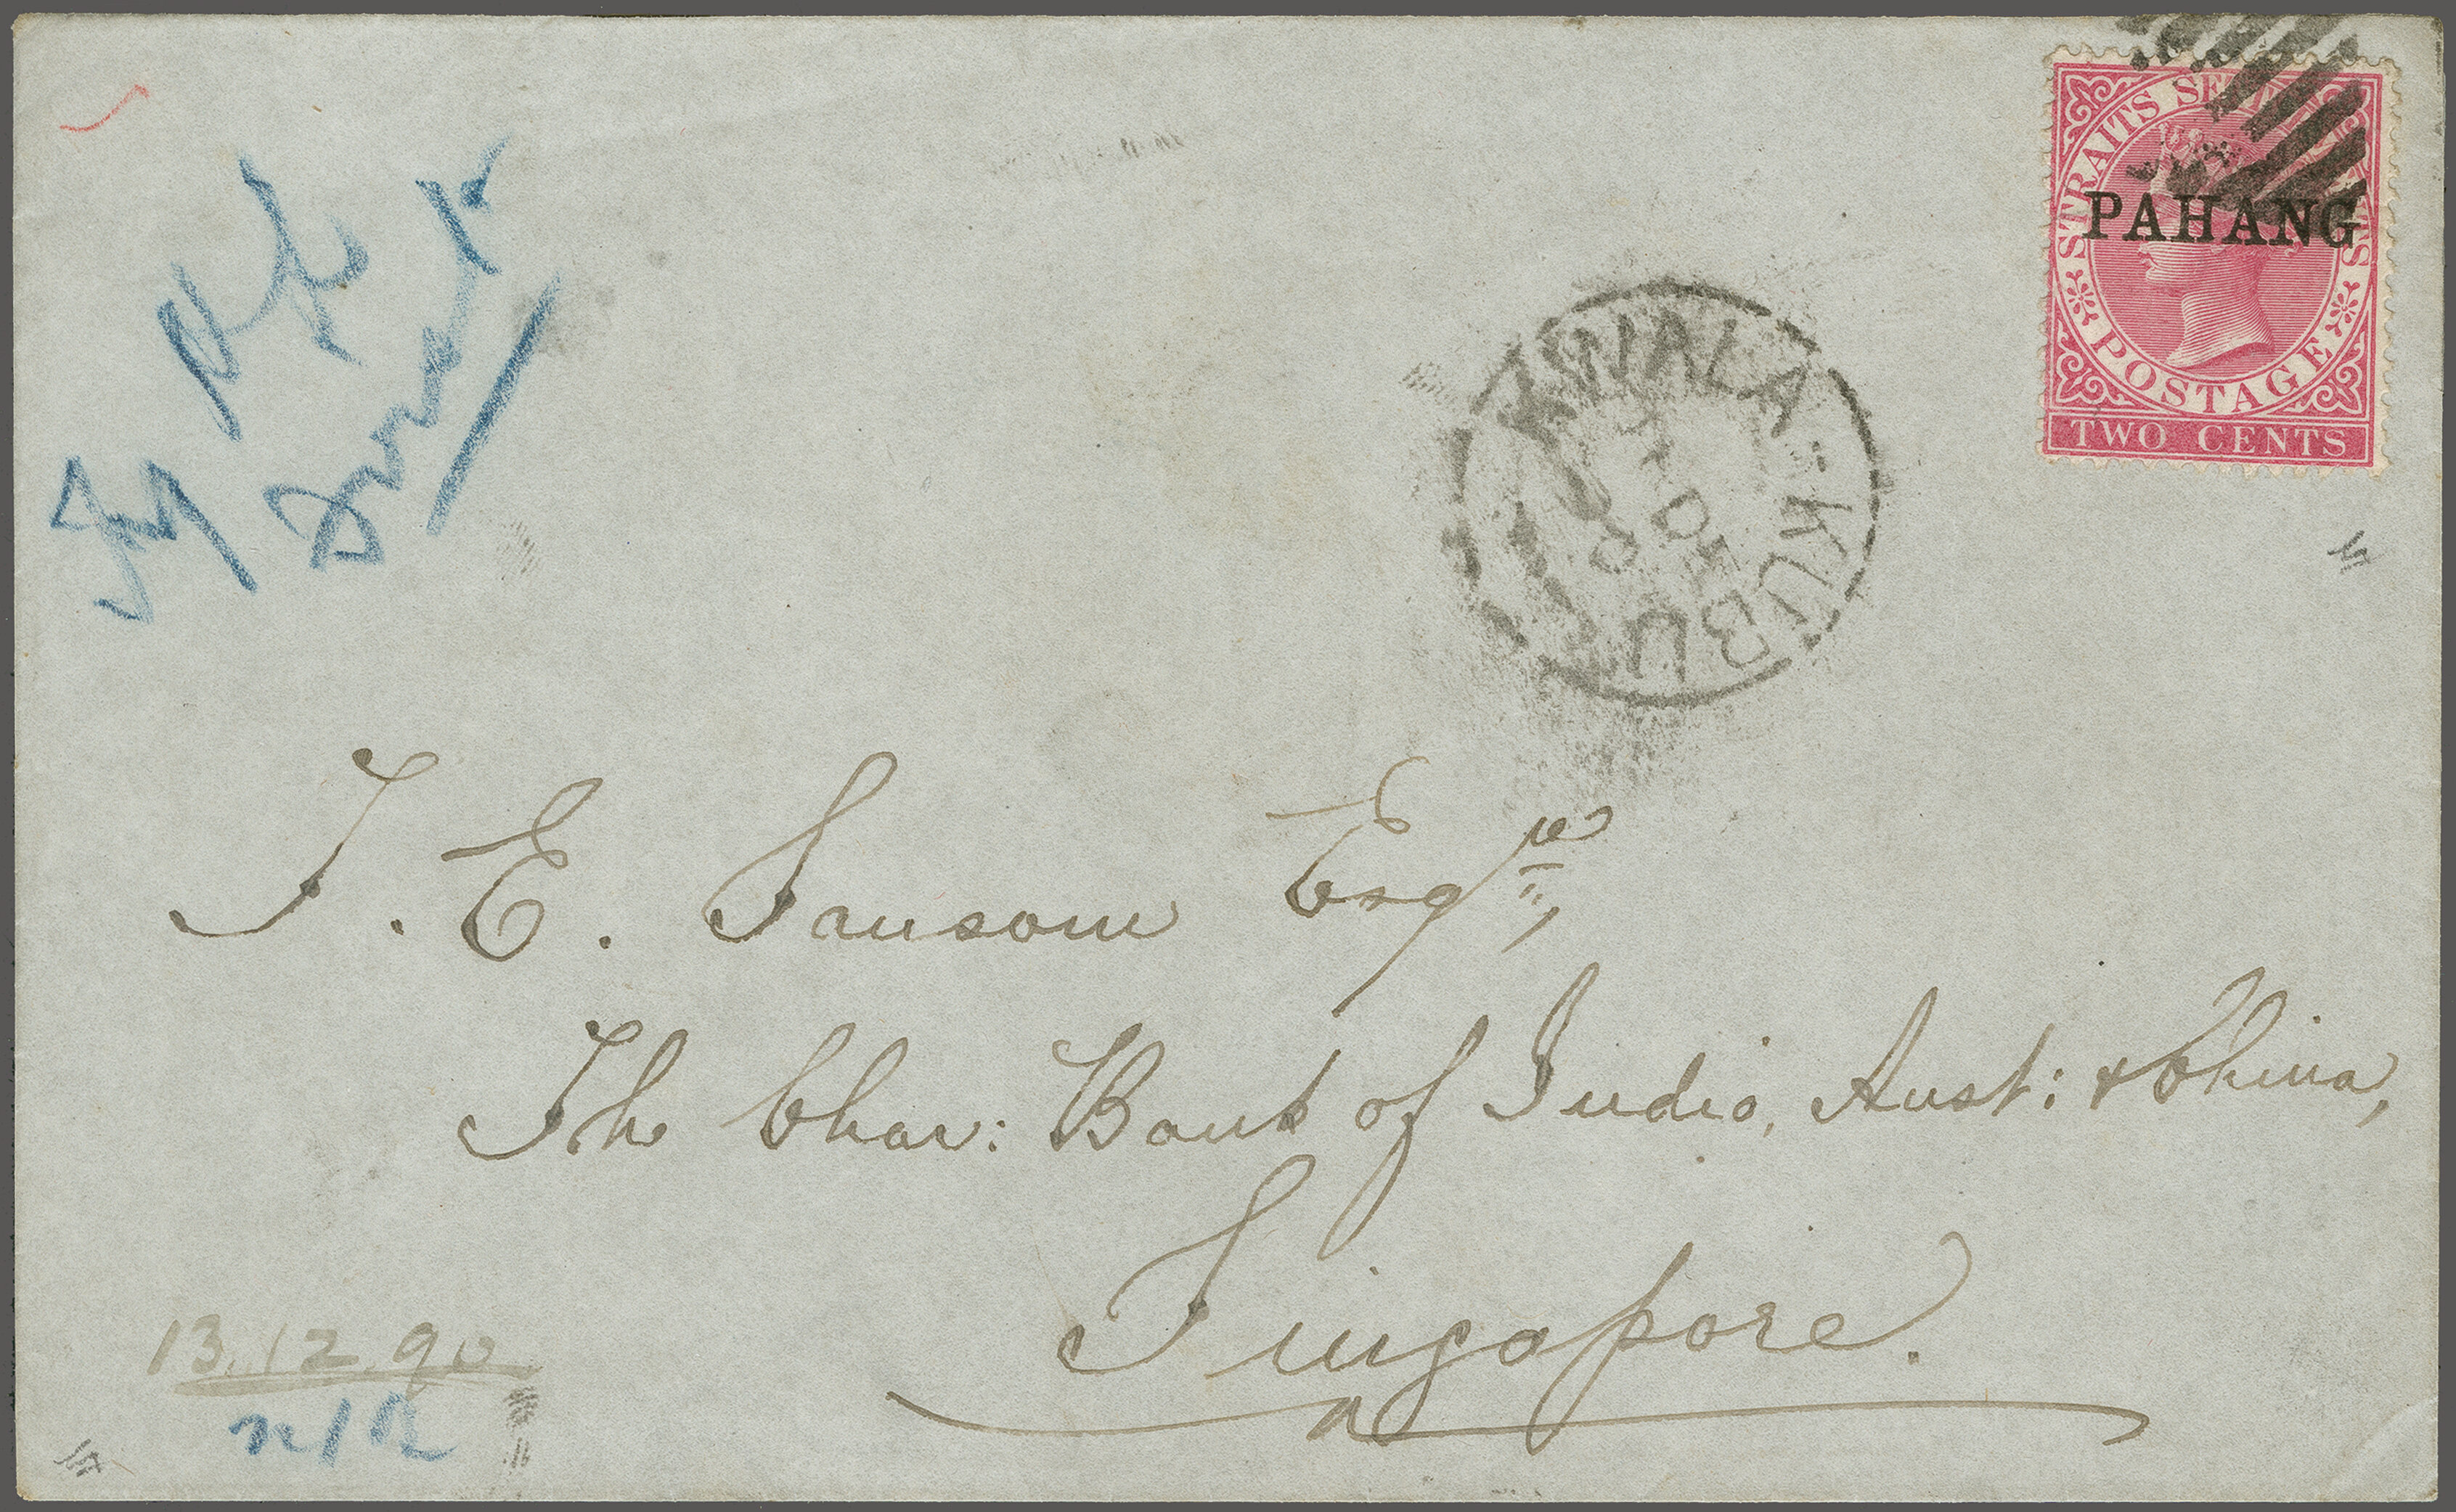 STRAITS SETTLEMENTS
PAHANG
POSTAGE
TWO CENTS
KWALA-KUBU
DE
T. E. Sansom Esqre,
The Char: Bank of India, Aust: & China,
Singapore.
13.12.90
n/R